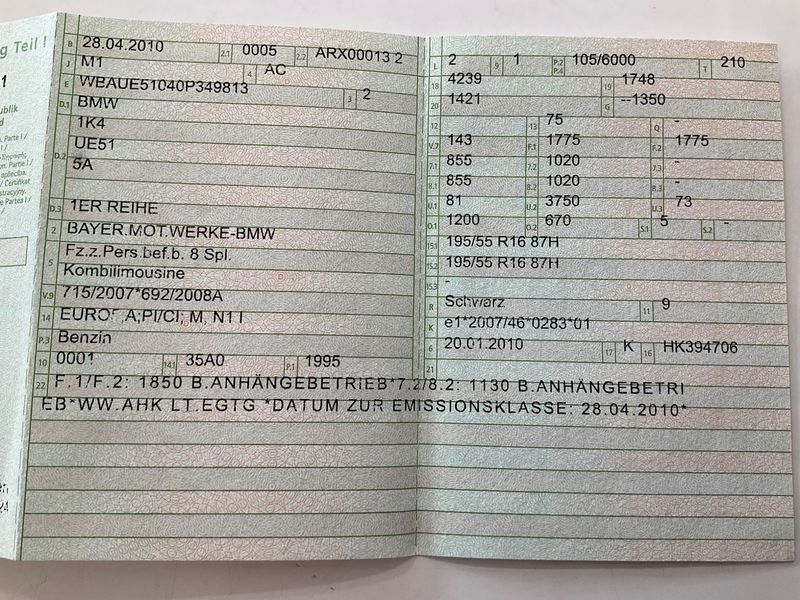 g Teil I
1
ublik
d
B 28.04.2010 2.1 0005 2.2 ARX00013 2
J M1 4 AC
E WBAUE51040P349813 3 2
D.1 BMW
1K4
D.2 UE51
5A
D.3 1ER REIHE
2 BAYER.MOT.WERKE-BMW
5 Fz.z.Pers.bef.b. 8 Spl.
Kombilimousine
V.9 715/2007*692/2008A
14 EURO , A;PI/CI; M, N1 I
P.3 Benzin
10 0001 14.1 35A0 P.1 1995
22 F.1/F.2: 1850 B.ANHÄNGEBETRIEB*7.2/8.2: 1130 B.ANHÄNGEBETRI
EB*WW.AHK LT.EGTG *DATUM ZUR EMISSIONSKLASSE: 28.04.2010*
L 2 9 1 P.2 P.4 105/6000 T 210
18 4239 19 1748
20 1421 G --1350
12 13 75 Q -
V.7 143 F.1 1775 F.2 1775
7.1 855 7.2 1020 7.3 -
8.1 855 8.2 1020 8.3 -
U.1 81 U.2 3750 U.3 73
O.1 1200 O.2 670 S.1 5 S.2 -
15.1 195/55 R16 87H
15.2 195/55 R16 87H
15.3 -
R Schwarz 11 9
K e1*2007/46*0283*01
6 20.01.2010 17 K 16 HK394706
21
24